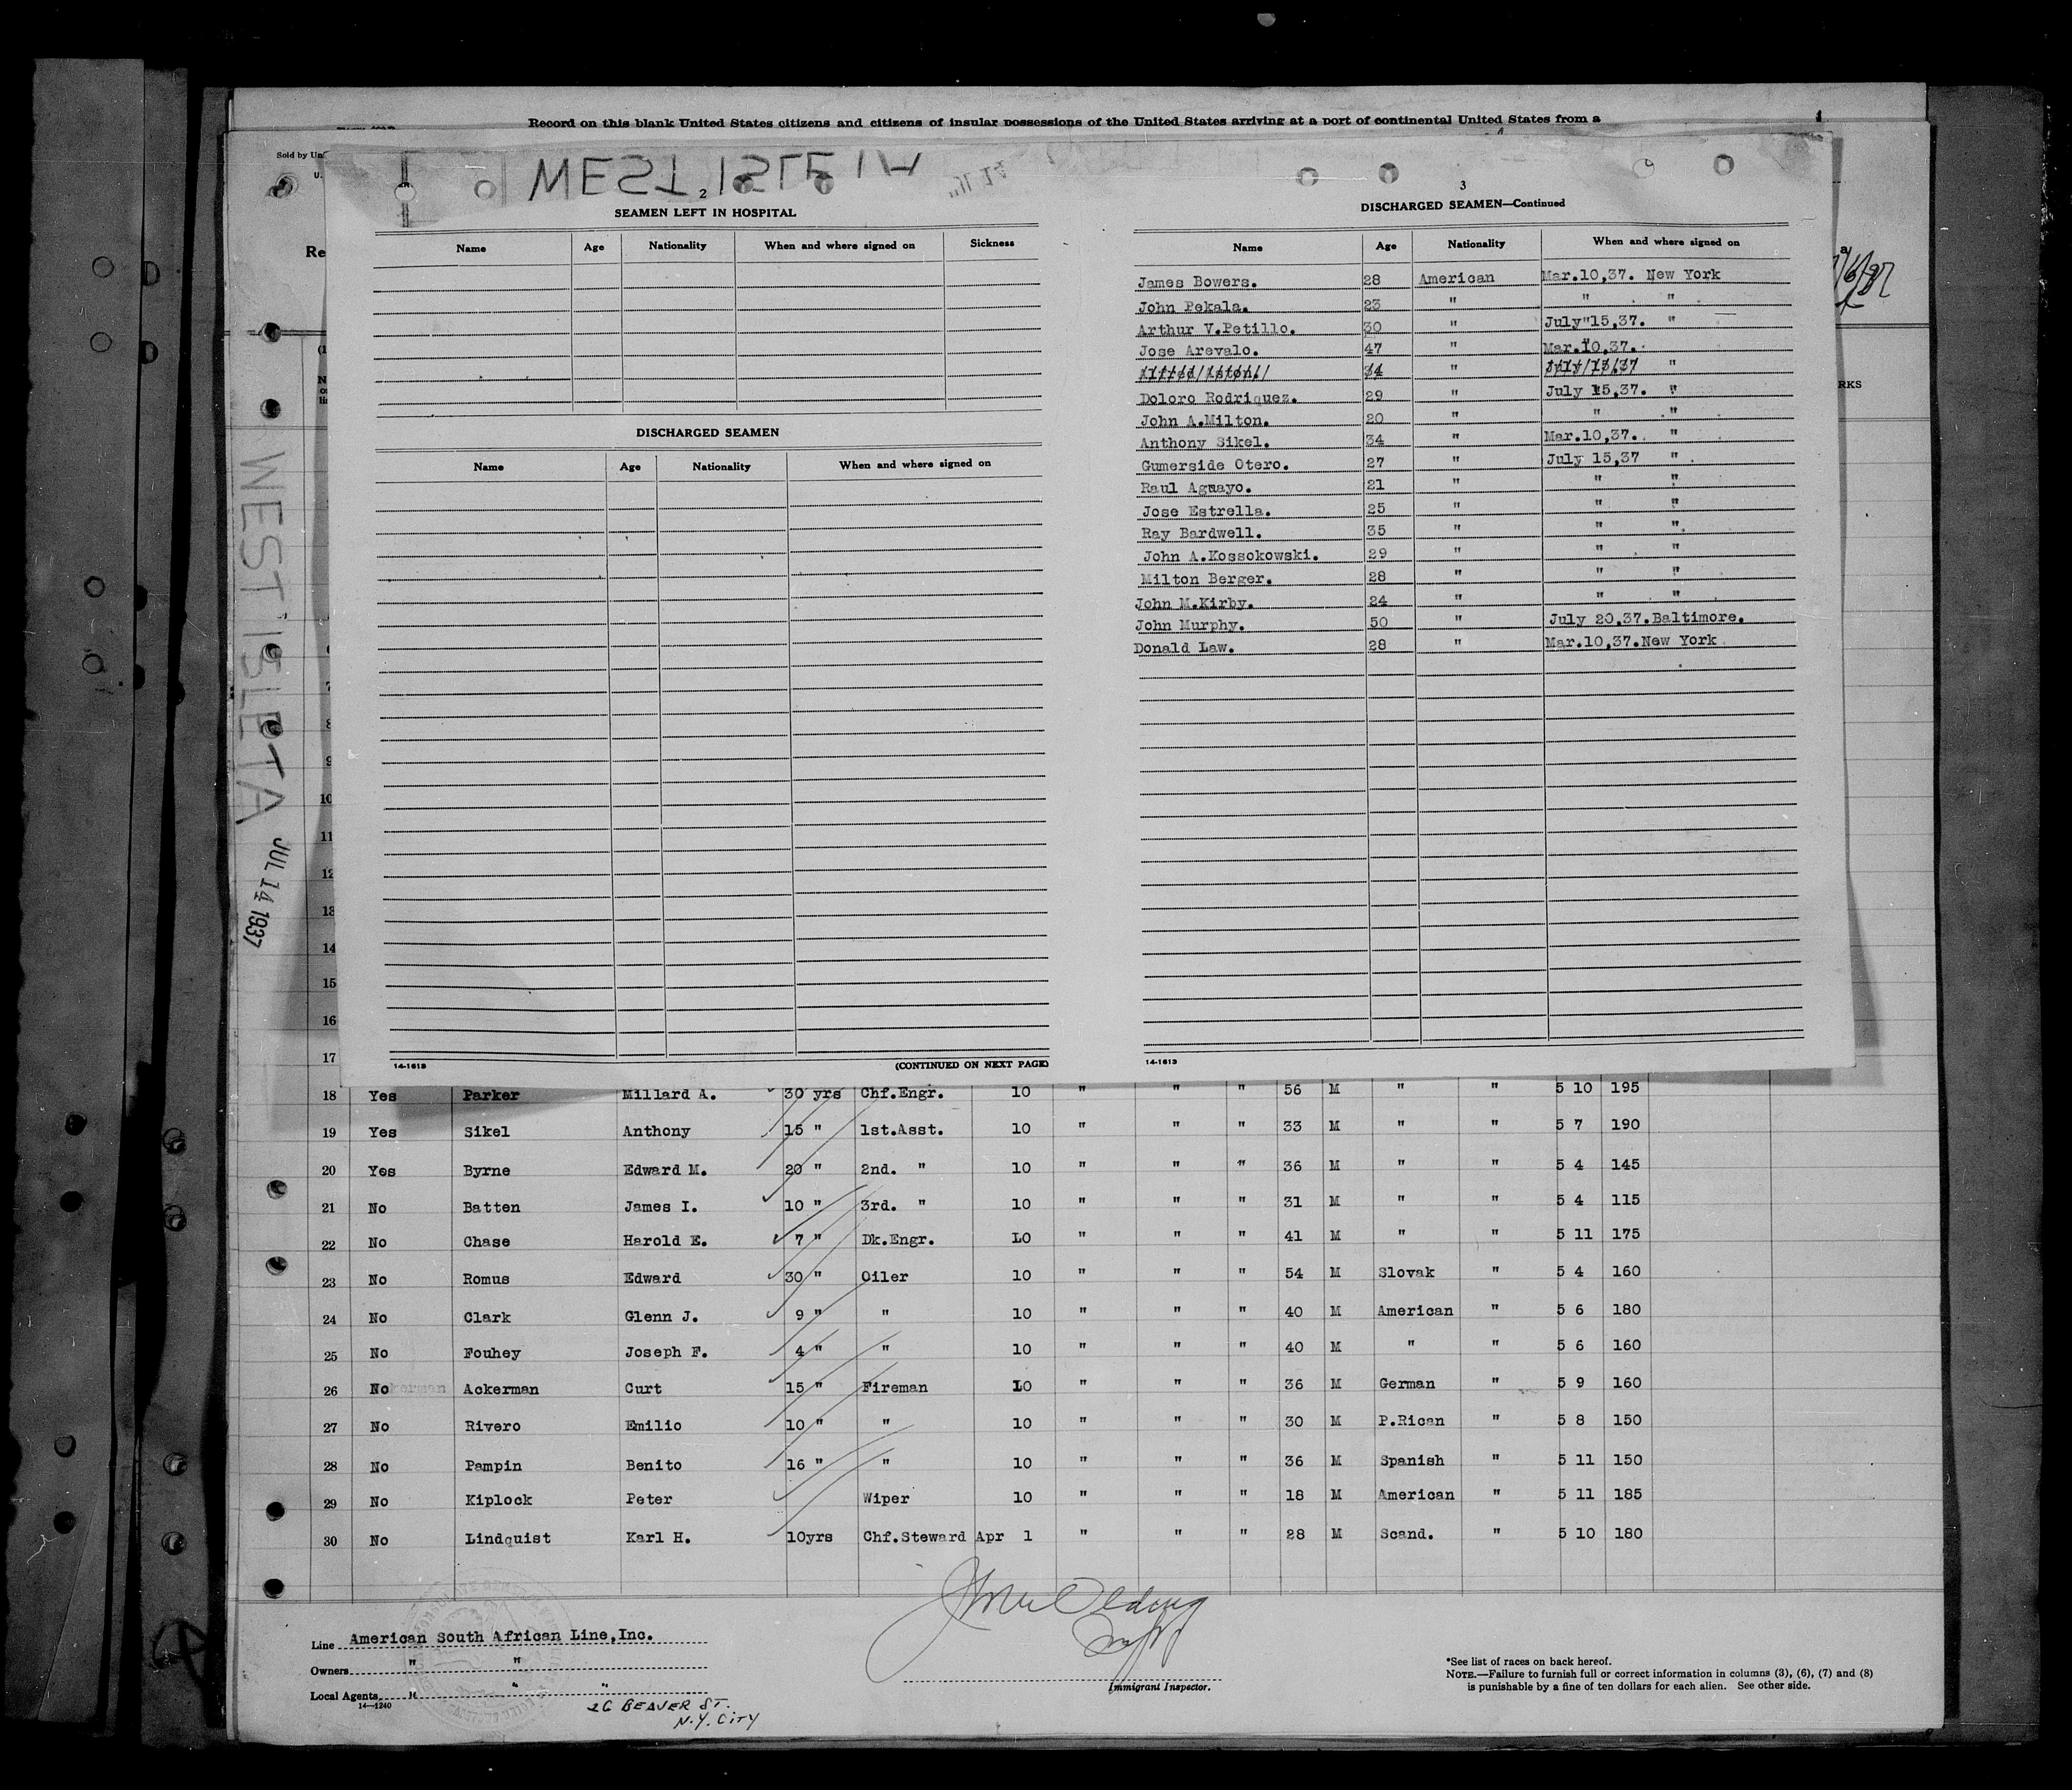 Record on this blank United States citizens and citizens of insular possessions of the United States arriving at a port of continental United States from a
Sold by
U.
Re
WEST ISLETA
JUL 14 1937
2
SEAMEN LEFT IN HOSPITAL
Name Age Nationality When and where signed on Sickness
DISCHARGED SEAMEN
Name Age Nationality When and where signed on
14-1613 (CONTINUED ON NEXT PAGE)
3
DISCHARGED SEAMEN—Continued
Name Age Nationality When and where signed on
James Bowers. 28 American Mar.10,37. New York
John Pekala. 23 " " "
Arthur V.Petillo. 30 " July"15,37. "
Jose Arevalo. 47 " Mar.10,37.
34 " July/15/37 "
Doloro Rodriquez. 29 " July 15,37. "
John A.Milton. 20 " " "
Anthony Sikel. 34 " Mar.10,37. "
Gumerside Otero. 27 " July 15,37 "
Raul Aguayo. 21 " " "
Jose Estrella. 25 " " "
Ray Bardwell. 35 " " "
John A.Kossokowski. 29 " " "
Milton Berger. 28 " " "
John M.Kirby. 24 " " "
John Murphy. 50 " July 20,37.Baltimore.
Donald Law. 28 " Mar.10,37.New York
14-1613
RKS
7
8
9
10
11
12
13
14
15
16
17
18 Yes Parker Millard A. 30 yrs Chf.Engr. 10 " " " 56 M " " 5 10 195
19 Yes Sikel Anthony 15 " 1st.Asst. 10 " " " 33 M " " 5 7 190
20 Yes Byrne Edward M. 20 " 2nd. " 10 " " " 36 M " " 5 4 145
21 No Batten James I. 10 " 3rd. " 10 " " " 31 M " " 5 4 115
22 No Chase Harold E. 7 " Dk.Engr. 10 " " " 41 M " " 5 11 175
23 No Romus Edward 30 " Oiler 10 " " " 54 M Slovak " 5 4 160
24 No Clark Glenn J. 9 " " 10 " " " 40 M American " 5 6 180
25 No Fouhey Joseph F. 4 " " 10 " " " 40 M " " 5 6 160
26 No Ackerman Curt 15 " Fireman 10 " " " 36 M German " 5 9 160
27 No Rivero Emilio 10 " " 10 " " " 30 M P.Rican " 5 8 150
28 No Pampin Benito 16 " " 10 " " " 36 M Spanish " 5 11 150
29 No Kiplock Peter Wiper 10 " " " 18 M American " 5 11 185
30 No Lindquist Karl H. 10yrs Chf.Steward Apr 1 " " " 28 M Scand. " 5 10 180
Line American South African Line,Inc.
Owners " "
Local Agents " " "
14—1240
26 BEAVER ST.
N.Y. CITY
Immigrant Inspector.
*See list of races on back hereof.
NOTE.—Failure to furnish full or correct information in columns (3), (6), (7) and (8)
is punishable by a fine of ten dollars for each alien. See other side.